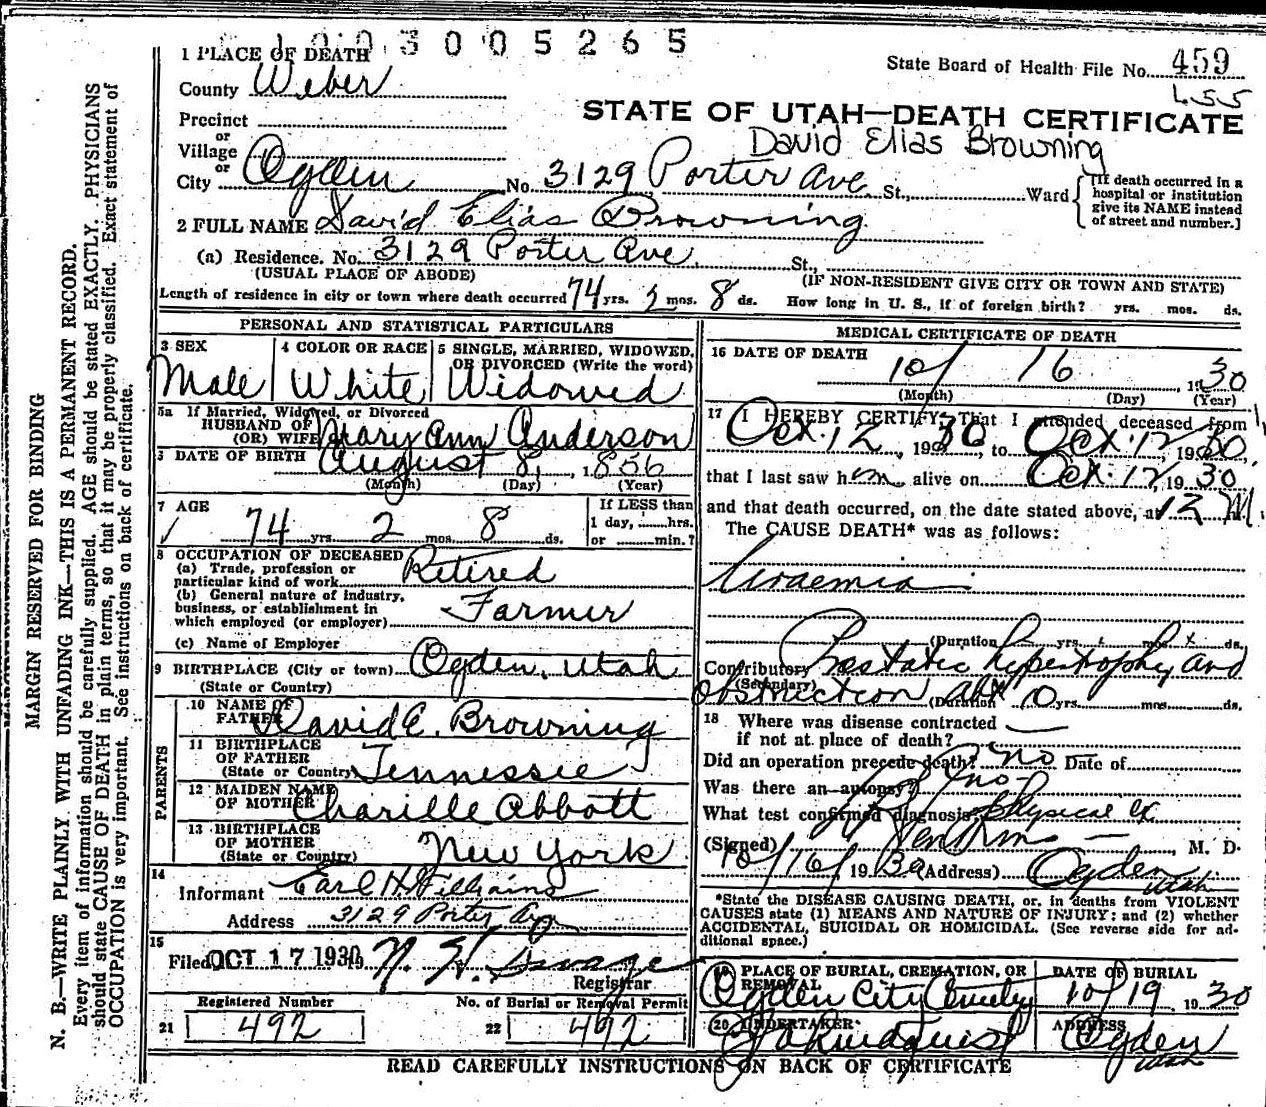 1 9 0 3 0 0 5 2 6 5
1 PLACE OF DEATH
State Board of Health File No. 459
County Weber
455
STATE OF UTAH—DEATH CERTIFICATE
Precinct
David Elias Browning
or
Village
or
City Ogden No. 3129 Porter Ave St., Ward
[If death occurred in a hospital or institution give its NAME instead of street and number.]
2 FULL NAME David Elias Browning
(a) Residence. No. 3129 Porter Ave. St.,
(USUAL PLACE OF ABODE) (IF NON-RESIDENT GIVE CITY OR TOWN AND STATE)
Length of residence in city or town where death occurred 74 yrs. 2 mos. 8 ds. How long in U. S., if of foreign birth? yrs. mos. ds.
PERSONAL AND STATISTICAL PARTICULARS
3 SEX 4 COLOR OR RACE 5 SINGLE, MARRIED, WIDOWED,
OR DIVORCED (Write the word)
Male White Widowed
5a If Married, Widowed, or Divorced
HUSBAND OF
(OR) WIFE Mary Ann Anderson
DATE OF BIRTH August 8, 1856
(Month) (Day) (Year)
7 AGE If LESS than
1 day, ......hrs.
74 yrs. 2 mos. 8 ds. or ......min.?
8 OCCUPATION OF DECEASED
(a) Trade, profession or
particular kind of work Retired
(b) General nature of industry,
business, or establishment in
which employed (or employer) Farmer
(c) Name of Employer
9 BIRTHPLACE (City or town) Ogden, Utah
(State or Country)
PARENTS
10 NAME OF
FATHER David E. Browning
11 BIRTHPLACE
OF FATHER
(State or Country) Tennessie
12 MAIDEN NAME
OF MOTHER Charille Abbott
13 BIRTHPLACE
OF MOTHER
(State or Country) New York
14
Informant Earl H. Williams
Address 3129 Porter Ave
15
Filed OCT 17 1930, 19 Savage
Registrar
Registered Number No. of Burial or Removal Permit
21 492 22 492
MEDICAL CERTIFICATE OF DEATH
16 DATE OF DEATH
10/ 16, 1930
(Month) (Day) (Year)
17 I HEREBY CERTIFY, That I attended deceased from
Oct. 12, 1930, to Oct. 12, 1930,
that I last saw him alive on Oct. 12, 1930
and that death occurred, on the date stated above, at 12 M.
The CAUSE DEATH* was as follows:
Uraemia
(Duration yrs. mos. ds.
Contributory Prostatic hypertrophy and
(Secondary)
obstruction (Duration abt 10 yrs. mos. ds.
18 Where was disease contracted
if not at place of death?
Did an operation precede death? no Date of
Was there an autopsy? no
What test confirmed diagnosis? physical ex
(Signed) , M. D.
10/16/, 1930 (Address) Ogden
Utah
*State the DISEASE CAUSING DEATH, or, in deaths from VIOLENT
CAUSES state (1) MEANS AND NATURE OF INJURY; and (2) whether
ACCIDENTAL, SUICIDAL OR HOMICIDAL. (See reverse side for ad-
ditional space.)
19 PLACE OF BURIAL, CREMATION, OR DATE OF BURIAL
REMOVAL
Ogden City Cemetery 10/19 1930
20 UNDERTAKER ADDRESS
Lindquist Ogden
Utah
READ CAREFULLY INSTRUCTIONS ON BACK OF CERTIFICATE
MARGIN RESERVED FOR BINDING
N. B.—WRITE PLAINLY WITH UNFADING INK—THIS IS A PERMANENT RECORD.
Every item of information should be carefully supplied. AGE should be stated EXACTLY. PHYSICIANS
should state CAUSE OF DEATH in plain terms, so that it may be properly classified. Exact statement of
OCCUPATION is very important. See instructions on back of certificate.